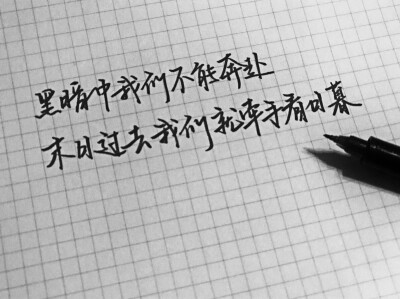 黑暗中我们不能奔赴
末日过去我们就牵手看日暮